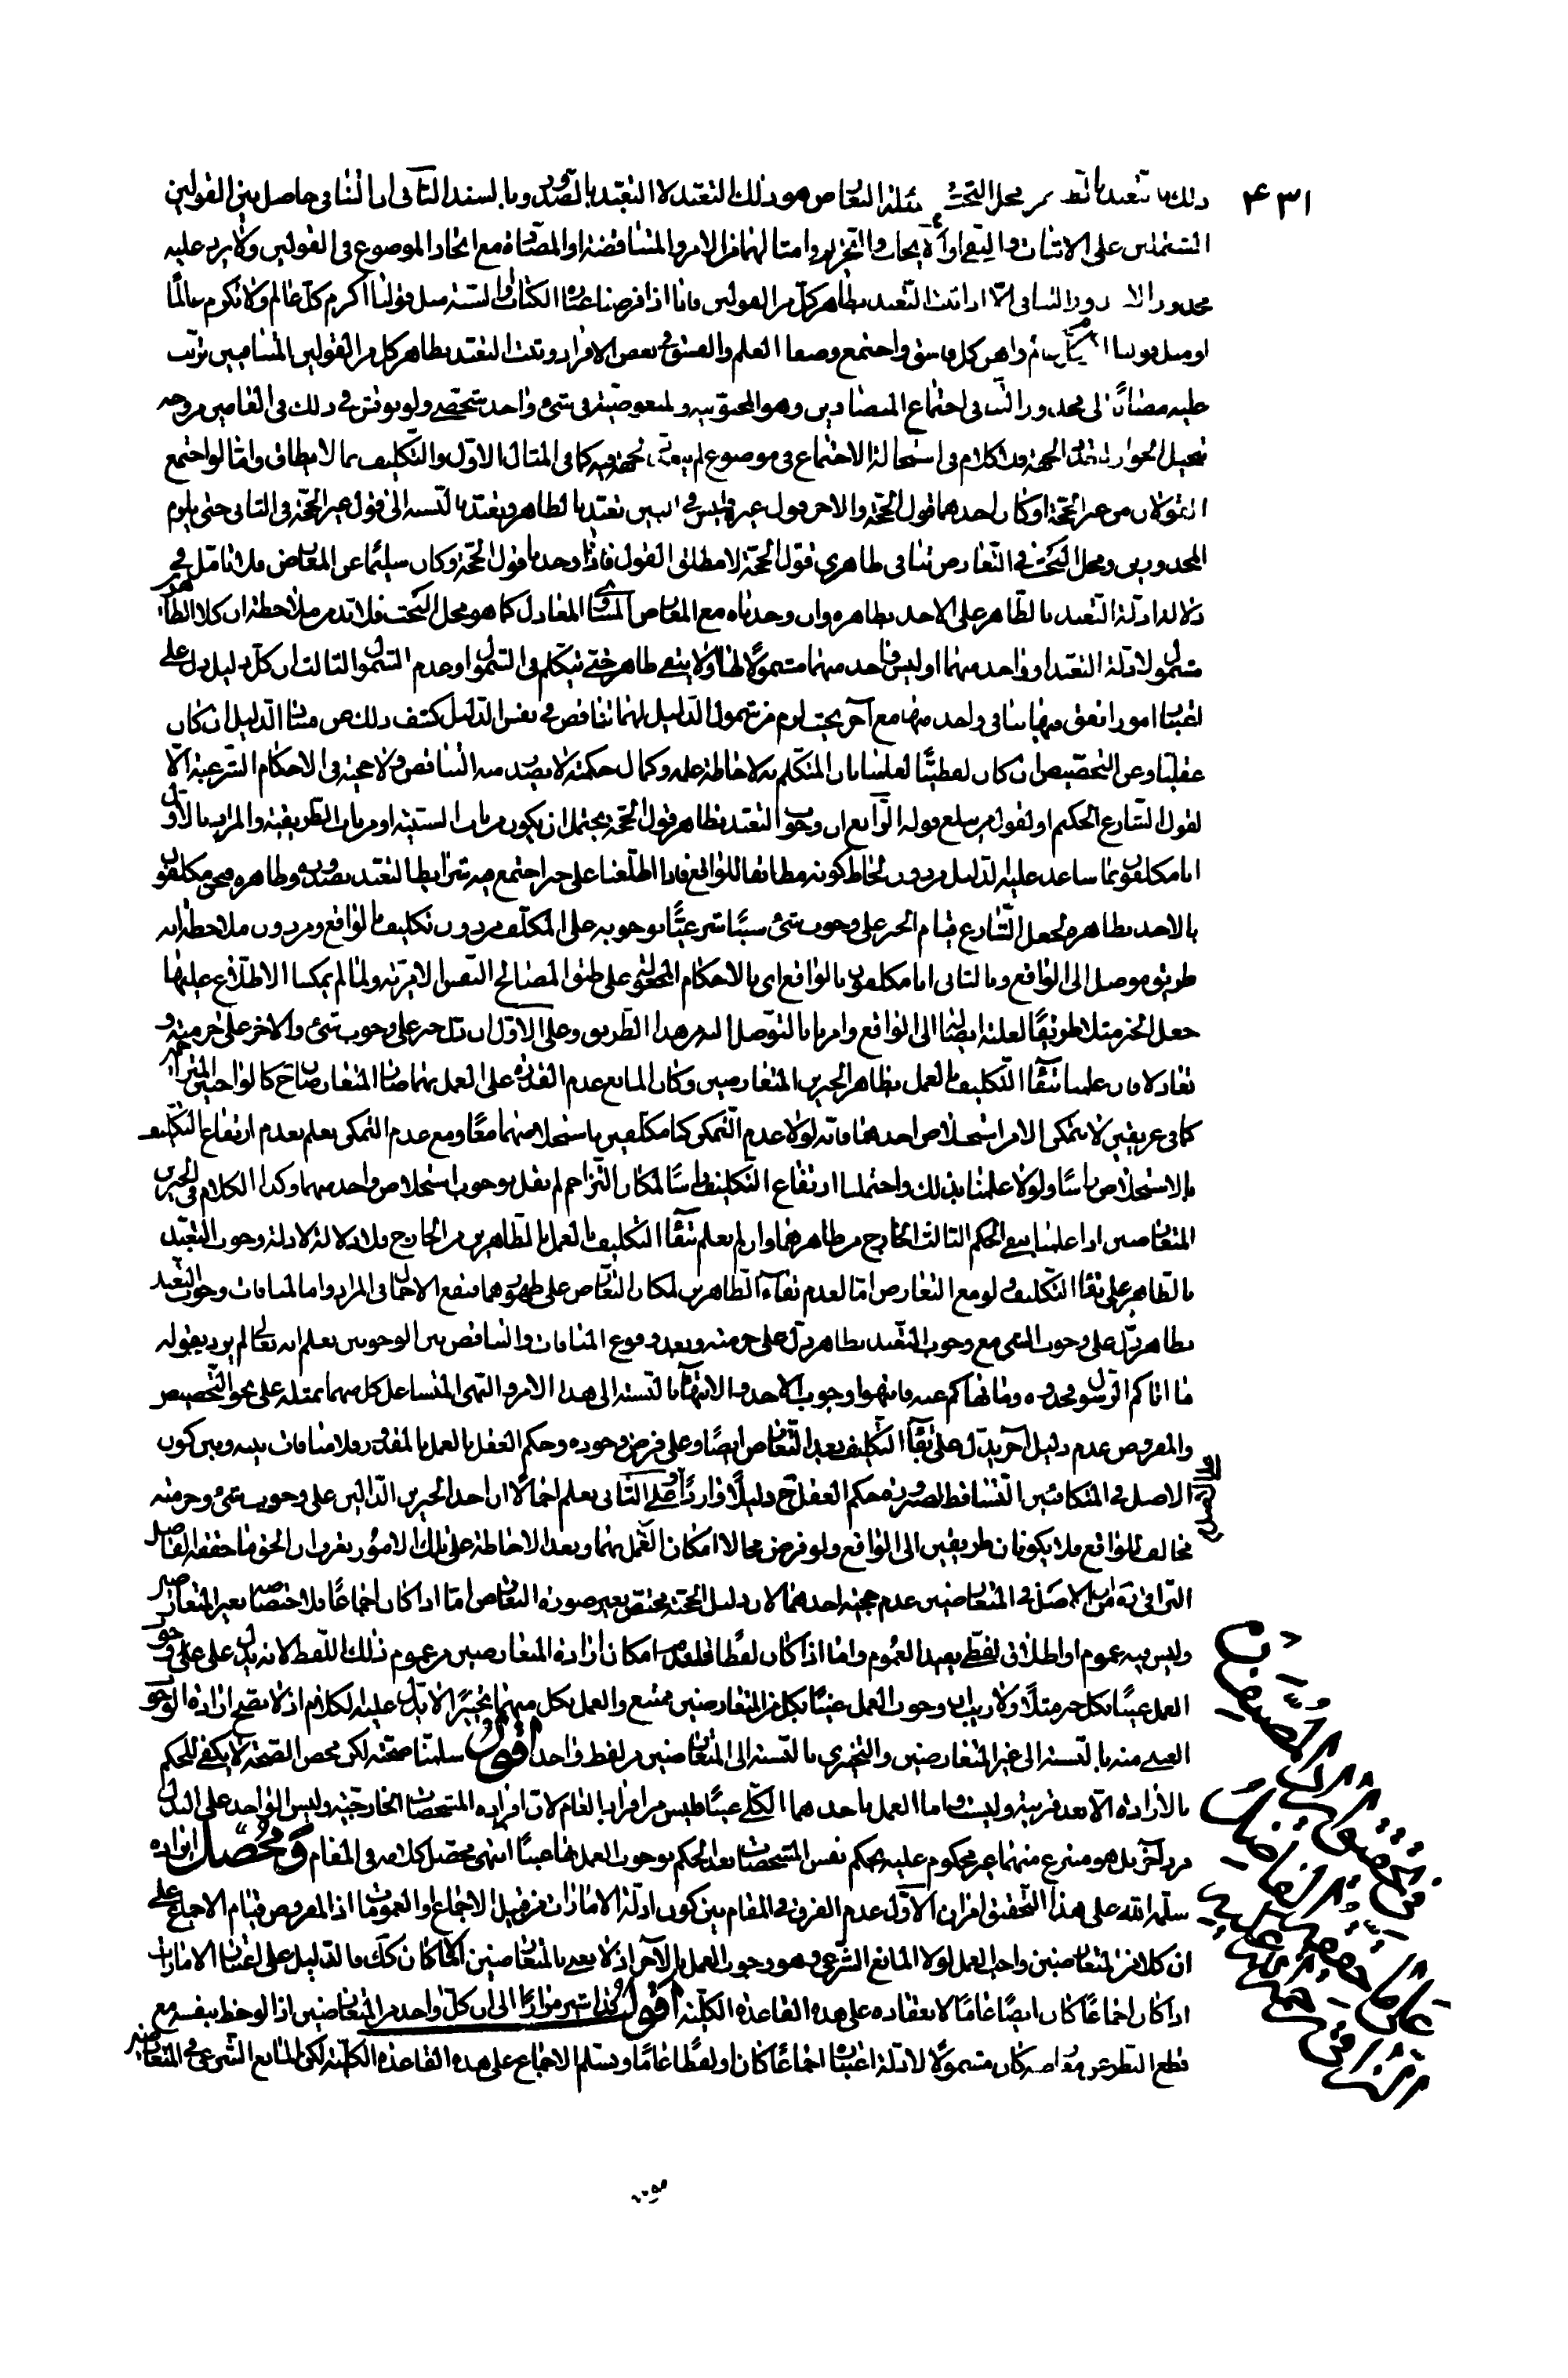 ٤٣١
محل البحث التعارض هو ذلك التعبد لا التعبد بالصدور وبالسند الثاني ان التنافي حاصل بين القولين
المشتملين على الاثبات والنفي او الايجاب والتحريم وامثالهما من الامور المتناقضة او المتضادة مع اتحاد الموضوع في القولين ولا يرد عليه
التنافي الا اذا ثبت التعبد بظاهر كل من القولين فانا اذا فرضنا عبارة الكتاب او السنة مثل قولنا اكرم كل عالم ولا تكرم عالما
واهن كل فاسق واجتمع وصفا العلم والفسق في بعض الافراد وثبت التعبد بظاهر كل من القولين المتنافيين ترتب
عليه مضافا الى محذور التنافي اجتماع المتضادين وهو المحبوبية والمبغوضية في شيء واحد شخصي ولو نوقش في ذلك في العامين من وجه
الكلام في استحالة الاجتماع في موضوع كما في المثال الاول والتكليف بما لا يطاق واما لو اجتمع
القولان من غير الحجة او كان احدهما قول الحجة والاخر قول غيره فليس في البين تعبد بالظاهر وتعبد بالنسبة الى قول غير الحجة في الثاني حتى يلزم
المحذورين ومحل البحث في التعارض تنافي ظاهري قول الحجة لا مطلق القول فاذا وجدنا قول الحجة وكان سليما عن المعارض فلا تامل في
دلالة ادلة التعبد بالظاهر على الاخذ بظاهره وان وجدناه مع المعارض المساوي المعادل كما هو محل البحث فلا بد من ملاحظة ان كلا الظاهرين
مشمول لادلة التعبد او واحد منهما او ليس واحد منهما مشمولا لها ولا ينبغي ظاهر حتى يتكلم في الشمول او عدم الشمول الثالث ان كل دليل دل على
اعتبار امور اتفق فيها تنافي واحد منها مع آخر بحيث لزم من شمول الدليل لهما تناقض في نفس الدليل كشف ذلك عن الدليل ان كان
عقليا وعن التخصيص ان كان لفظيا لعلمنا بان المتكلم به لاحاطة علمه وكمال حكمته لا يصدر منه التناقض ولا حجية في الاحكام الشرعية الا
لقول الشارع الحكيم او لقول من يبلغ قوله الرابع ان وجوب التعبد بظاهر قول الحجة يحتمل ان يكون من باب السببية او من باب الطريقية والمراد بالاول
انا مكلفون بما ساعد عليه الدليل من دون لحاظ كونه مطابقا للواقع فاذا اطلعنا على خبر اجتمع فيه شرايط التعبد بصدوره وظاهره فنحن مكلفون
بالاخذ بظاهره لجعل الشارع قيام الخبر على وجوب شيء سببا شرعيا لوجوبه على المكلف من دون تكليف بالواقع ومن دون ملاحظة انه
طريق موصل الى الواقع وبالثاني انا مكلفون بالواقع اي بالاحكام المجعولة على طبق المصالح النفس الامرية ولما لم يمكنا الاطلاع عليها
جعل الخبر مثلا طريقا لعلة ايصاله الى الواقع وامرنا بالتوصل اليه من هذا الطريق وعلى الاول ان دل خبر على وجوب شيء والاخر على حرمته و
تعادلا فان علمنا ببقاء التكليف بالعمل بظاهر الخبرين المتعارضين وكان المانع عدم القدرة على العمل بهما صار المتعارضان ح كالواجبين المتزاحمين
كما في غريقين لا يتمكن الا من استخلاص احدهما فانه لولا عدم التمكن كنا مكلفين باستخلاصهما معا ومع عدم التمكن نعلم بعدم ارتفاع التكليف
بالاستخلاص راسا ولولا علمنا بذلك واحتملنا ارتفاع التكليف راسا لمكان التزاحم لم نقل بوجوب استخلاص واحد منهما وكذا الكلام في الخبرين
المتعارضين اذا علمنا بنفي الحكم الثالث الخارج من ظاهرهما وان لم نعلم ببقاء التكليف بالعمل بالظاهرين من الخارج فلا دلالة لادلة وجوب التعبد
بالظاهر على بقاء التكليف ولو مع التعارض اما لعدم بقاء الظاهرين لمكان التعارض على ظهورهما فيقع الاجمال في المراد واما لمنافات وجوب التعبد
بظاهر دل على وجوب الشيء مع وجوب التعبد بظاهر دل على حرمته وبعد وقوع المنافات والتناقض بين الوجوبين نعلم انه تعالى لم يرد بقوله
ما اتاكم الرسول فخذوه وما نهاكم عنه فانتهوا وجوب الاخذ والانتهاء بالنسبة الى هذا الامر والنهي على نحو التخصيص
والمفروض عدم دليل آخر يدل على بقاء التكليف بعد التعارض ايضا وعلى فرض وجوده وحكم العقل بالعمل بالمقدور فلا منافات بينه وبين كون
الاصل في المتكافئين التساقط لصيرورة حكم العقل ح دليلا واردا وعلى الثاني نعلم اجمالا ان احد الخبرين الدالين على وجوب شيء وحرمته
مخالف للواقع فلا يكونان طريقين الى الواقع ولو فرض محالا امكان العمل بهما وبعد الاحاطة على تلك الامور نقول ان الحق ما حققه الفاضل
النراقي ره من ان الاصل في المتعارضين عدم حجية احدهما لان دليل الحجة مختص بغير صورة التعارض اما اذا كان اجماعا فلاختصاصه بغير المتعارضين
وليس فيه عموم او اطلاق لفظي يفيد العموم واما اذا كان لفظا فلعدم امكان ارادة المتعارضين من عموم ذلك اللفظ لانه يدل على وجوب
العمل عينا بكل خبر مثلا ولا ريب ان وجوب العمل عينا بكل من المتعارضين ممتنع والعمل بكل منهما تخييرا لا يدل عليه الكلام اذ لا يصح ارادة الوجوب
العيني منه بالنسبة الى غير المتعارضين والتخييري بالنسبة الى المتعارضين من لفظ واحد اقول سلمنا صحته لكن محض الصحة لا يكفي للحكم
بالارادة الا بعد قرينة وليست واما العمل باحدهما الكلي عينا فليس من افراد العام لان افراده المشخصات الخارجية وليس الواحد على البدل
فردا آخر بل هو منتزع منهما غير محكوم عليه بحكم نفس المشخصات بعد الحكم بوجوب العمل بهما عينا انتهى محصل كلامه في المقام ومحصل ايراده
سلمه الله على هذا التحقيق امران الاول عدم الفرق في المقام بين كون ادلة الامارات من قبيل الاجماع او العمومات اذ المفروض قيام الاجماع على
ان كلا من المتعارضين واجب العمل لولا المانع الشرعي وهو وجوب العمل بالآخر اذ لا نعني بالمتعارضين الا ما كان كذلك فالدليل على اعتبار الامارات
اذا كان اجماعا كان ايضا عاما لانعقاده على هذه القاعدة الكلية اقول كل واحد من المتعارضين اذا لوحظ بنفسه مع
قطع النظر عن معارضه كان مشمولا لادلة اعتباره اجماعا كان او لفظا عاما ونسلم الاجماع على هذه القاعدة الكلية لكن المانع الشرعي في المتعارضين